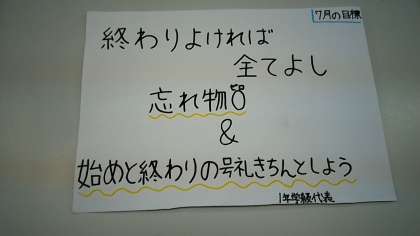 7月の目標
終わりよければ
全てよし
忘れ物0
&
始めと終わりの号礼きちんとしよう
1年学級代表